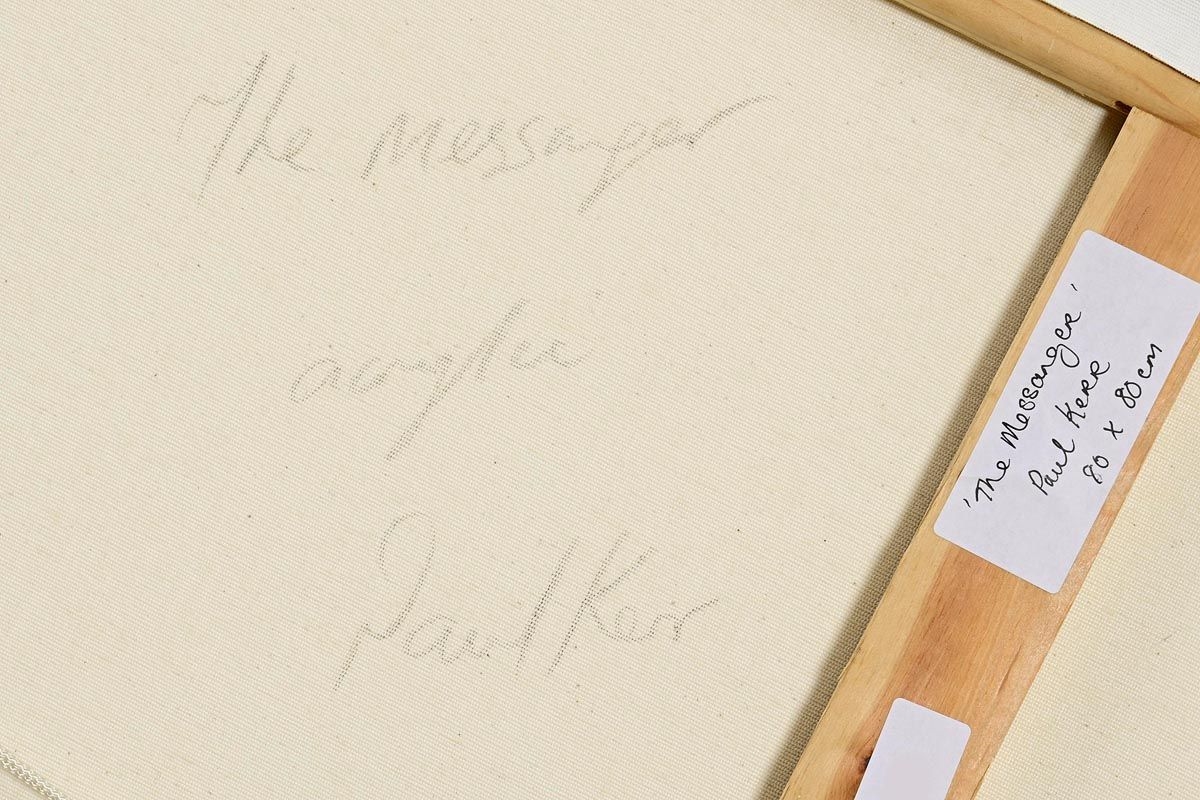 The Messanger
acrylic
Paul Kerr
'The Messanger'
Paul Kerr
80 x 80cm